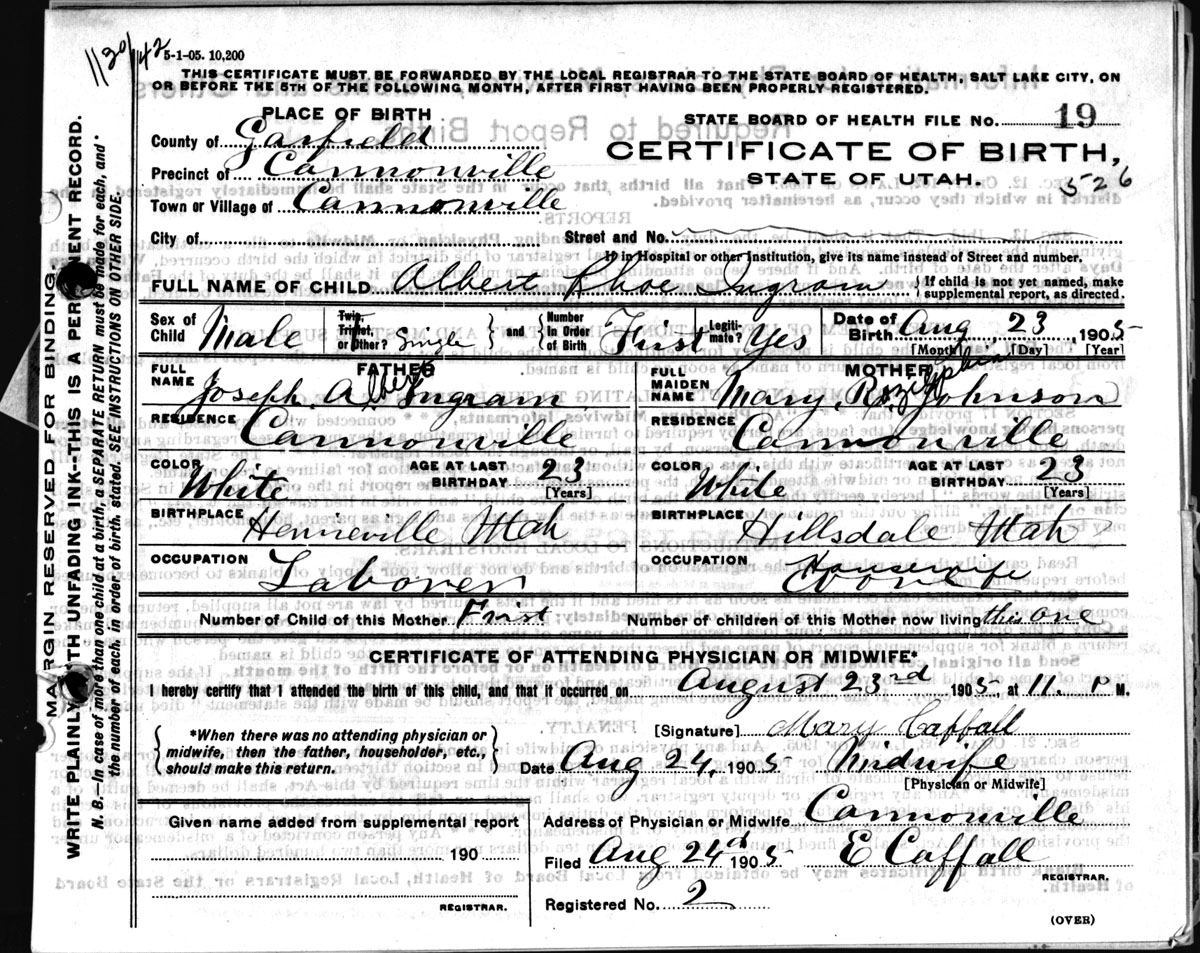 1130/42
5-1-05. 10,200
THIS CERTIFICATE MUST BE FORWARDED BY THE LOCAL REGISTRAR TO THE STATE BOARD OF HEALTH, SALT LAKE CITY, ON
OR BEFORE THE 5TH OF THE FOLLOWING MONTH, AFTER FIRST HAVING BEEN PROPERLY REGISTERED.
PLACE OF BIRTH
STATE BOARD OF HEALTH FILE No. 19
County of Garfield
CERTIFICATE OF BIRTH,
Precinct of Cannonville
STATE OF UTAH.
526
Town or Village of Cannonville
City of
Street and No.
If in Hospital or other Institution, give its name instead of Street and number.
FULL NAME OF CHILD Albert Rhoe Ingram { If child is not yet named, make
supplemental report, as directed.
Sex of Child Male Twin, Triplet, or Other? Single } and { Number In Order of Birth First Legiti- mate? Yes Date of Birth Aug 23 1905
[Month] [Day] [Year]
FATHER
FULL NAME Joseph Albert Ingram
RESIDENCE Cannonville
COLOR White AGE AT LAST BIRTHDAY 23
[Years]
BIRTHPLACE Henrieville Utah
OCCUPATION Laborer
MOTHER
FULL MAIDEN NAME Mary Johnson
RESIDENCE Cannonville
COLOR White AGE AT LAST BIRTHDAY 23
[Years]
BIRTHPLACE Hillsdale Utah
OCCUPATION
Number of Child of this Mother First Number of children of this Mother now living this one
CERTIFICATE OF ATTENDING PHYSICIAN OR MIDWIFE*
I hereby certify that I attended the birth of this child, and that it occurred on August 23rd 1905, at 11. P M.
{ *When there was no attending physician or
midwife, then the father, householder, etc.,
should make this return. }
[Signature] Mary Caffall
Date Aug 24, 1905 Midwife
[Physician or Midwife]
Given name added from supplemental report
190
REGISTRAR.
Address of Physician or Midwife Cannonville
Filed Aug 24th 1905 E Caffall
REGISTRAR.
Registered No. 2
(OVER)
MARGIN RESERVED FOR BINDING.
WRITE PLAINLY WITH UNFADING INK--THIS IS A PERMANENT RECORD.
N. B.--In case of more than one child at a birth, a SEPARATE RETURN must be made for each, and
the number of each, in order of birth, stated. SEE INSTRUCTIONS ON OTHER SIDE.